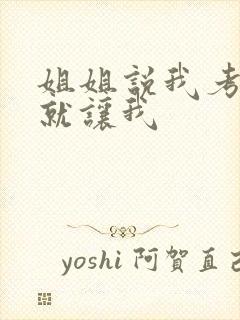 姐姐説我考
就讓我
yoshi 阿賀直己